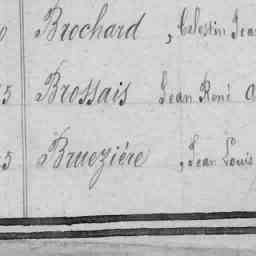 0 Brochard, Célestin Jea
5 Brossais Jean René
5 Bruezière, Jean Louis